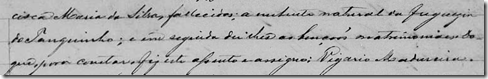 cisca Maria da Silva, fallecidos: a nubente natural da freguezia
de Tanquinho; e em seguida dei lhes as bençãos matrimoniaes. Do
que, para constar fiz este assento e assigno. Vigario Madureira.